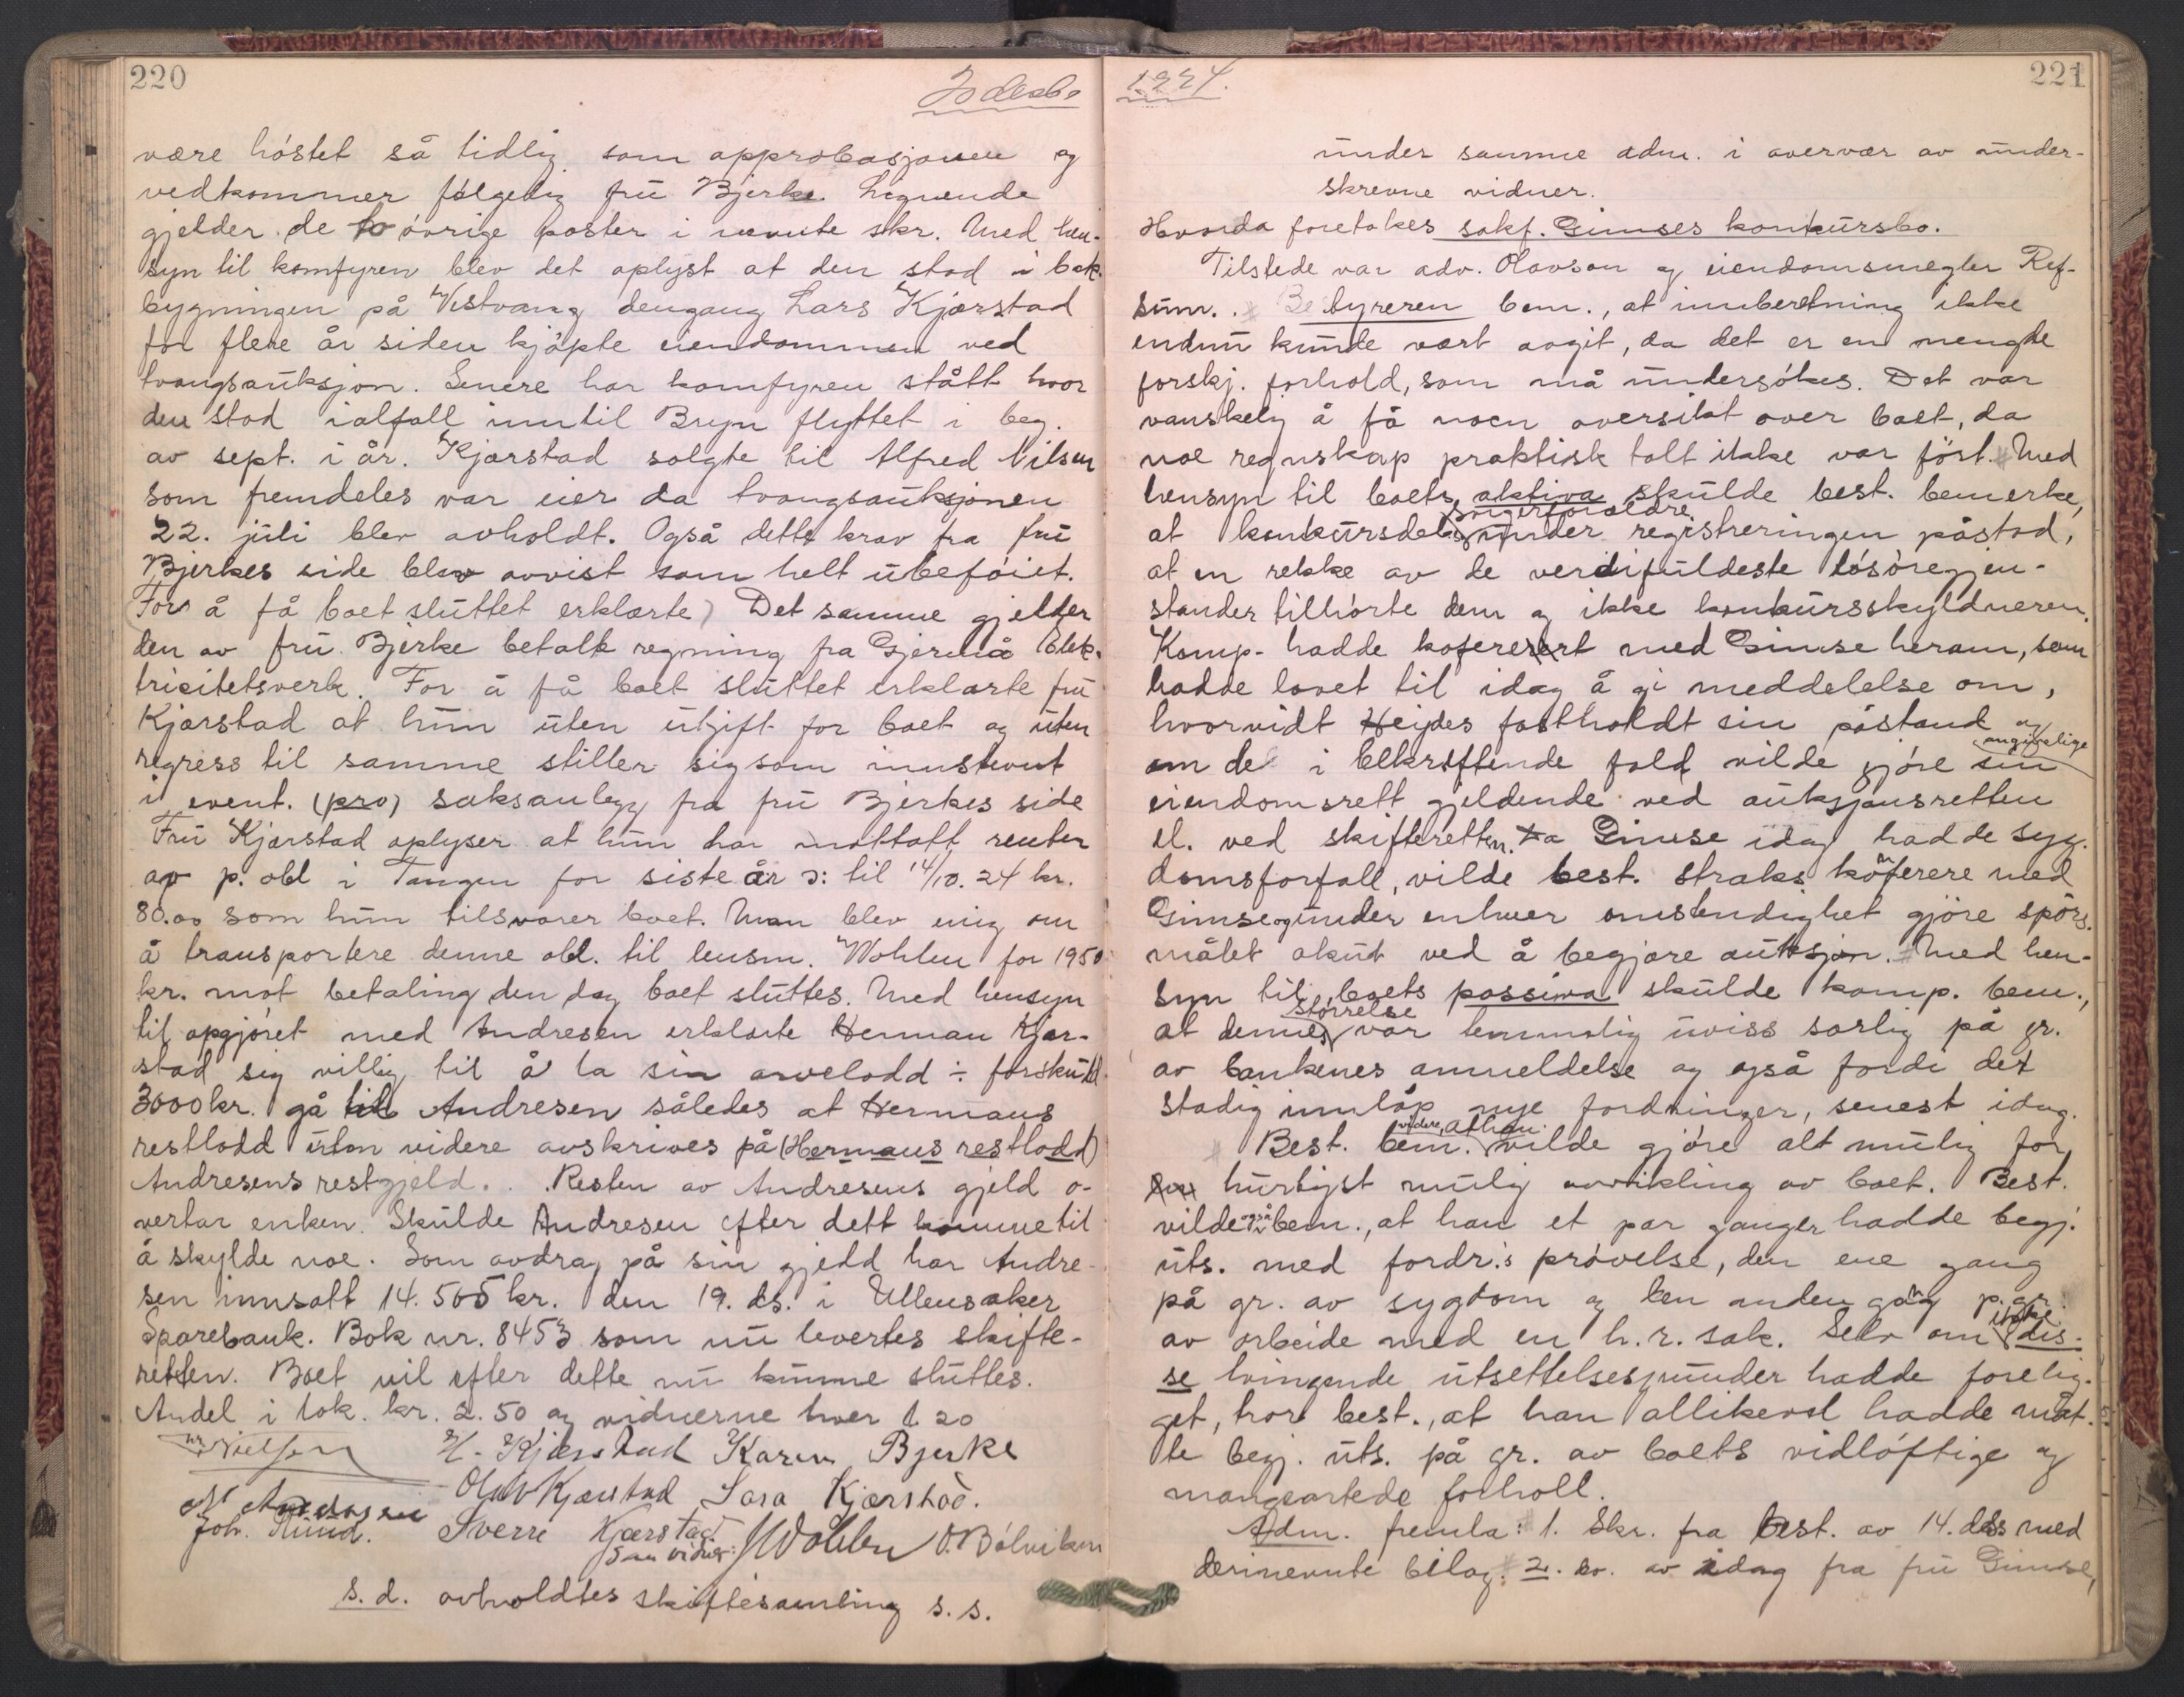 220
være höstet så tidlig som approbasjonen og
vedkommer følgelig frü Bjerke. Lignende
gjelder de to övrige poster i nevnte skr. Med hen-
syn til komfyren blev det oplyst at den stod i bak-
bygningen på Vestvang dengang Lars Kjærstad
for flere år siden kjöpte eiendommen ved
tvangsauksjon. Senere har komfyren stått hvor
den stod ialfall inntil Bryn flyttet i beg.
av sept. i år. Kjærstad solgte til Alfred Nilsen
som fremdeles var eier da tvangsauksjonen
22. juli blev avholdt. Også dette krav fra frü
Bjerkes side blev avvist som helt ubeföiet.
(For å få boet sluttet erklærte) Det samme gjelder
den av frü Bjerke betalt regning fra Gjermå Elek-
trisitetsverk. For å få boet sluttet erklærte frü
Kjærstad at hun uten utgift for boet og uten
regress til samme stiller sig som innstevnt
i event. (pro) saksanlegg fra frü Bjerkes side
Frü Kjærstad oplyser at hun har mottatt renter
av p. obl i Tangen for siste år ɔ: til 14/10. 24 kr.
80.00 som hun tilsvarer boet. Man blev enig om
å transportere denne obl. til lensm. Wohlen for 1950
kr. mot betaling den dag boet sluttes. Med hensyn
til opgjöret med Andresen erklærte Herman Kjær-
stad sig villig til å la sin arvelodd ÷ forskudd
3000 kr. gå til Andresen således at Hermans
restlodd uten videre avskrives på (Hermans restlodd)
Andresens restgjeld. . Resten av Andresens gjeld o-
vertar enken. Skulde Andresen efter dett komme til
å skylde noe. Som avdrag på sin gjeld har Andre-
sen innsatt 14.505 kr. den 19. ds. i Ullensaker
Sparebank. Bok nr. 8453 som nu levertes skifte-
retten. Boet vil efter dette nu kunne sluttes.
Andel i lok. kr. 2.50 og vidnerne hver 1.20
Nielsen H. Kjærstad Karen Bjerke
Olav Kjærstad Sara Kjærstad.
Andresen
Joh. Rund. Sverre Kjærstad
som vidner: JWohlen O. Bölviken
S. d. avholdtes skiftesamling s. s.
1924.
221
under samme adm. i overvær av under-
skrevne vidner.
Hvorda foretokes sakf. Gimses konkursbo.
Tilstede var adv. Olavson og eiendomsmegler Ref-
sum. . Bestyreren bem., at innberetning ikke
endnu kunde vært avgit, da det er en mengde
forskj. forhold, som må undersökes. Det var
vanskelig å få noen oversikt over boet, da
noe regnskap praktisk talt ikke var fört. Med
hensyn til boets aktiva skulde best. bemerke,
svigerforeldre
at konkursdeb.s under registreringen påstod,
at en rekke av de verdifuldeste lösöregjen-
stander tilhörte dem og ikke konkursskyldneren.
Komp. hadde konfereret med Gimse herom, som
hadde lovet til idag å gi meddelelse om,
hvorvidt Heides fastholdt sin påstand og
angivelige
om de i bekreftende fald vilde gjöre sin
eiendomsrett gjeldende ved auksjonsretten
el. ved skifteretten. Da Gimse idag hadde syg-
domsforfall, vilde best. straks konferere med
Gimse og under enhver omstendighet gjöre spörs-
målet akut ved å begjære auksjon. Med hen-
syn til boets passiva skulde komp. bem.,
störrelse
at dennes var temmelig uviss særlig på gr.
av bankenes anmeldelse og også fordi det
stadig innlöp nye fordringer, senest idag.
videre, at han
Best. bem. vilde gjöre alt mulig for
hurtigst mulig avvikling av boet. Best.
vilde også bem., at han et par ganger hadde begj.
uts. med fordr.s prövelse, den ene gang
på gr. av sygdom og den anden gang p. gr.
ikke
av arbeide med en h.r. sak. Selv om dis-
se tvingende utsettelsesgrunder hadde forelig-
get, tror best., at han allikevel hadde måt-
te begj. uts. på gr. av boets vidlöftige og
mangeartede forhold.
Adm. fremla: 1. Skr. fra best. av 14. ds med
derinevnte bilag. 2. do. av idag fra frü Gimse,